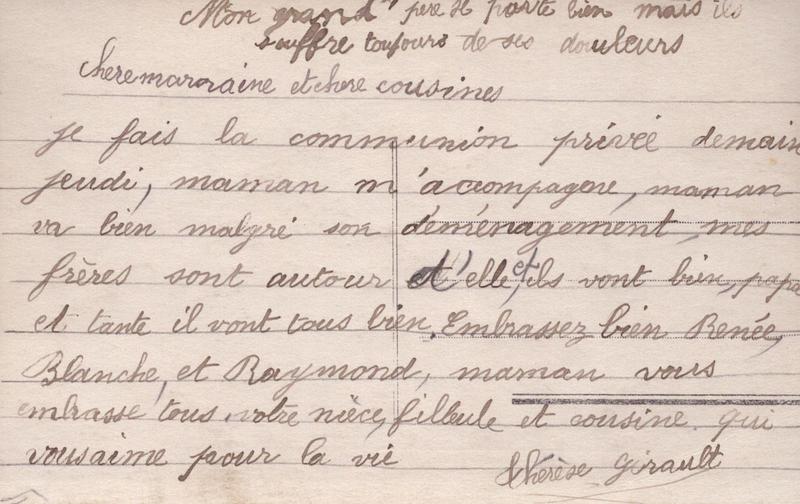 Mon grand père se porte bien mais ils
souffre toujours de ses douleurs
chere marraine et chere cousines
je fais la communion privée demain
jeudi, maman m'accompagne, maman
va bien malgré son déménagement, mes
frères sont autour d'elle, et ils vont bien, papa
et tante il vont tous bien. Embrassez bien Renée,
Blanche, et Raymond, maman vous
embrasse tous, votre nièce, filleule et cousine qui
vous aime pour la vie
thérèse Girault